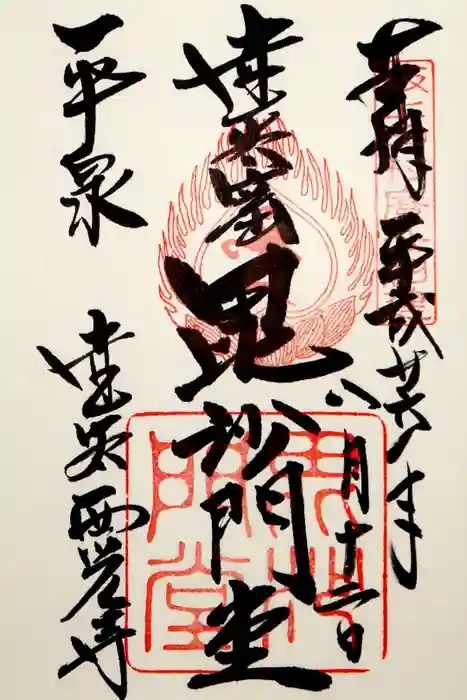 奉拝 平成廿六年八月十二日
達谷窟毘沙門堂
平泉 達谷西光寺
毘沙門堂